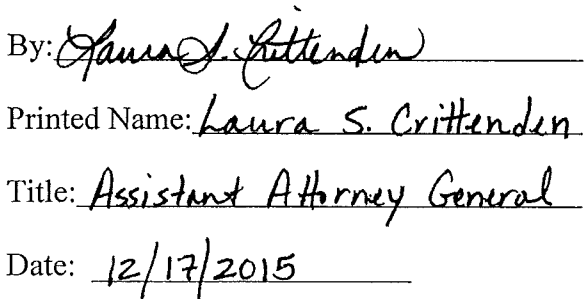 By: Laura S. Crittenden
Printed Name: Laura S. Crittenden
Title: Assistant Attorney General
Date: 12/17/2015